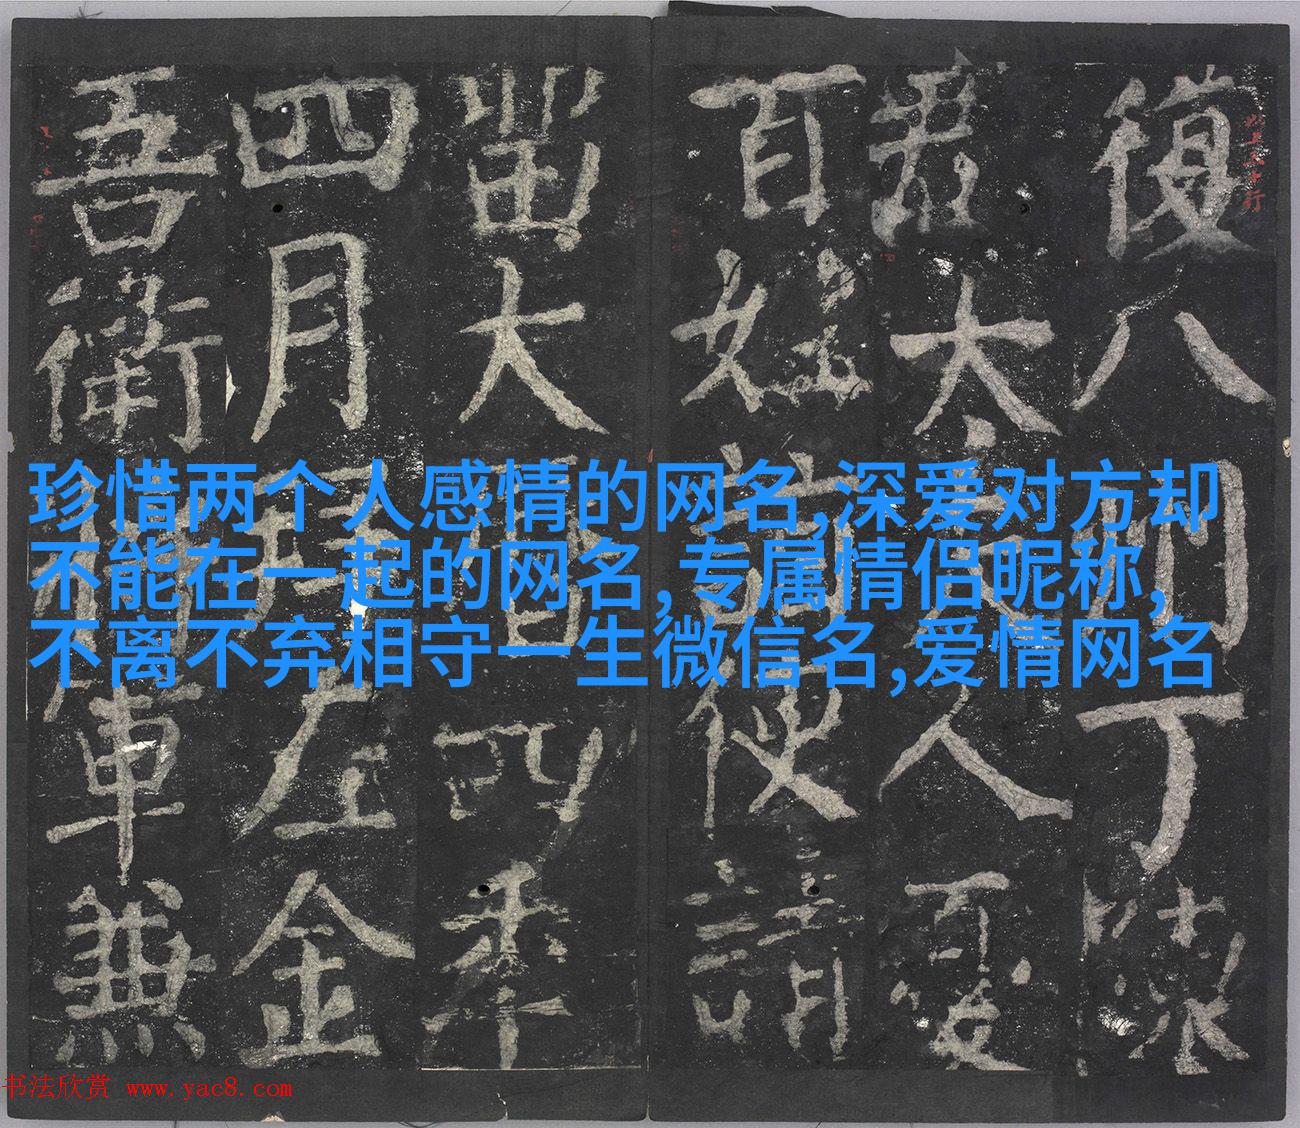 復八州丁陳
郡太夫人憂
百姓詣使請
留大曆四年
四月拜左金
吾衛將軍兼
珍惜两个人感情的网名,深爱对方却
不能在一起的网名,专属情侣昵称,
不离不弃相守一生微信名,爱情网名
书法欣赏 www.yac8.com